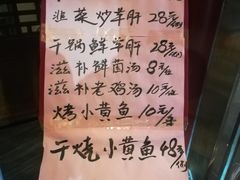 韭菜炒羊肝 28元/份
干锅鲜羊肝 28元/份
滋补鲜菌汤 8元/位
滋补老鸡汤 10元/位
烤小黄鱼 10元/
干烧小黄鱼 48元/份